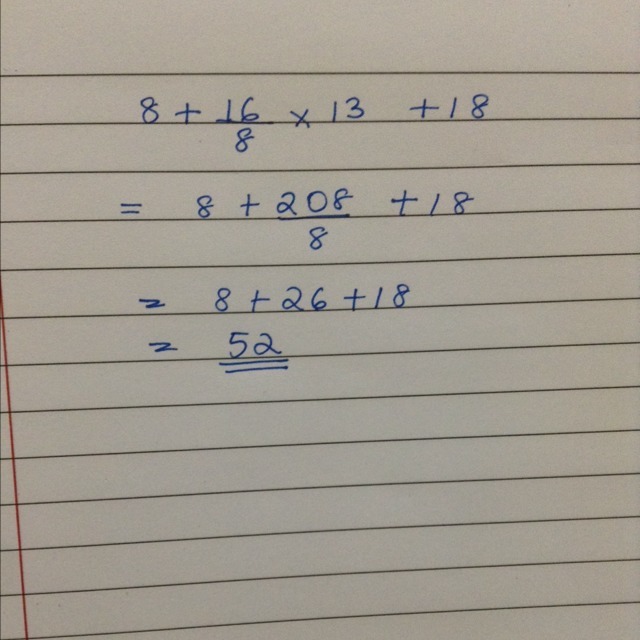 8 + 16/8 × 13 + 18
= 8 + 208/8 + 18
= 8 + 26 + 18
= 52